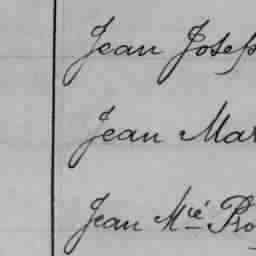 Jean Josep
Jean Mar
Jean Mie Ro